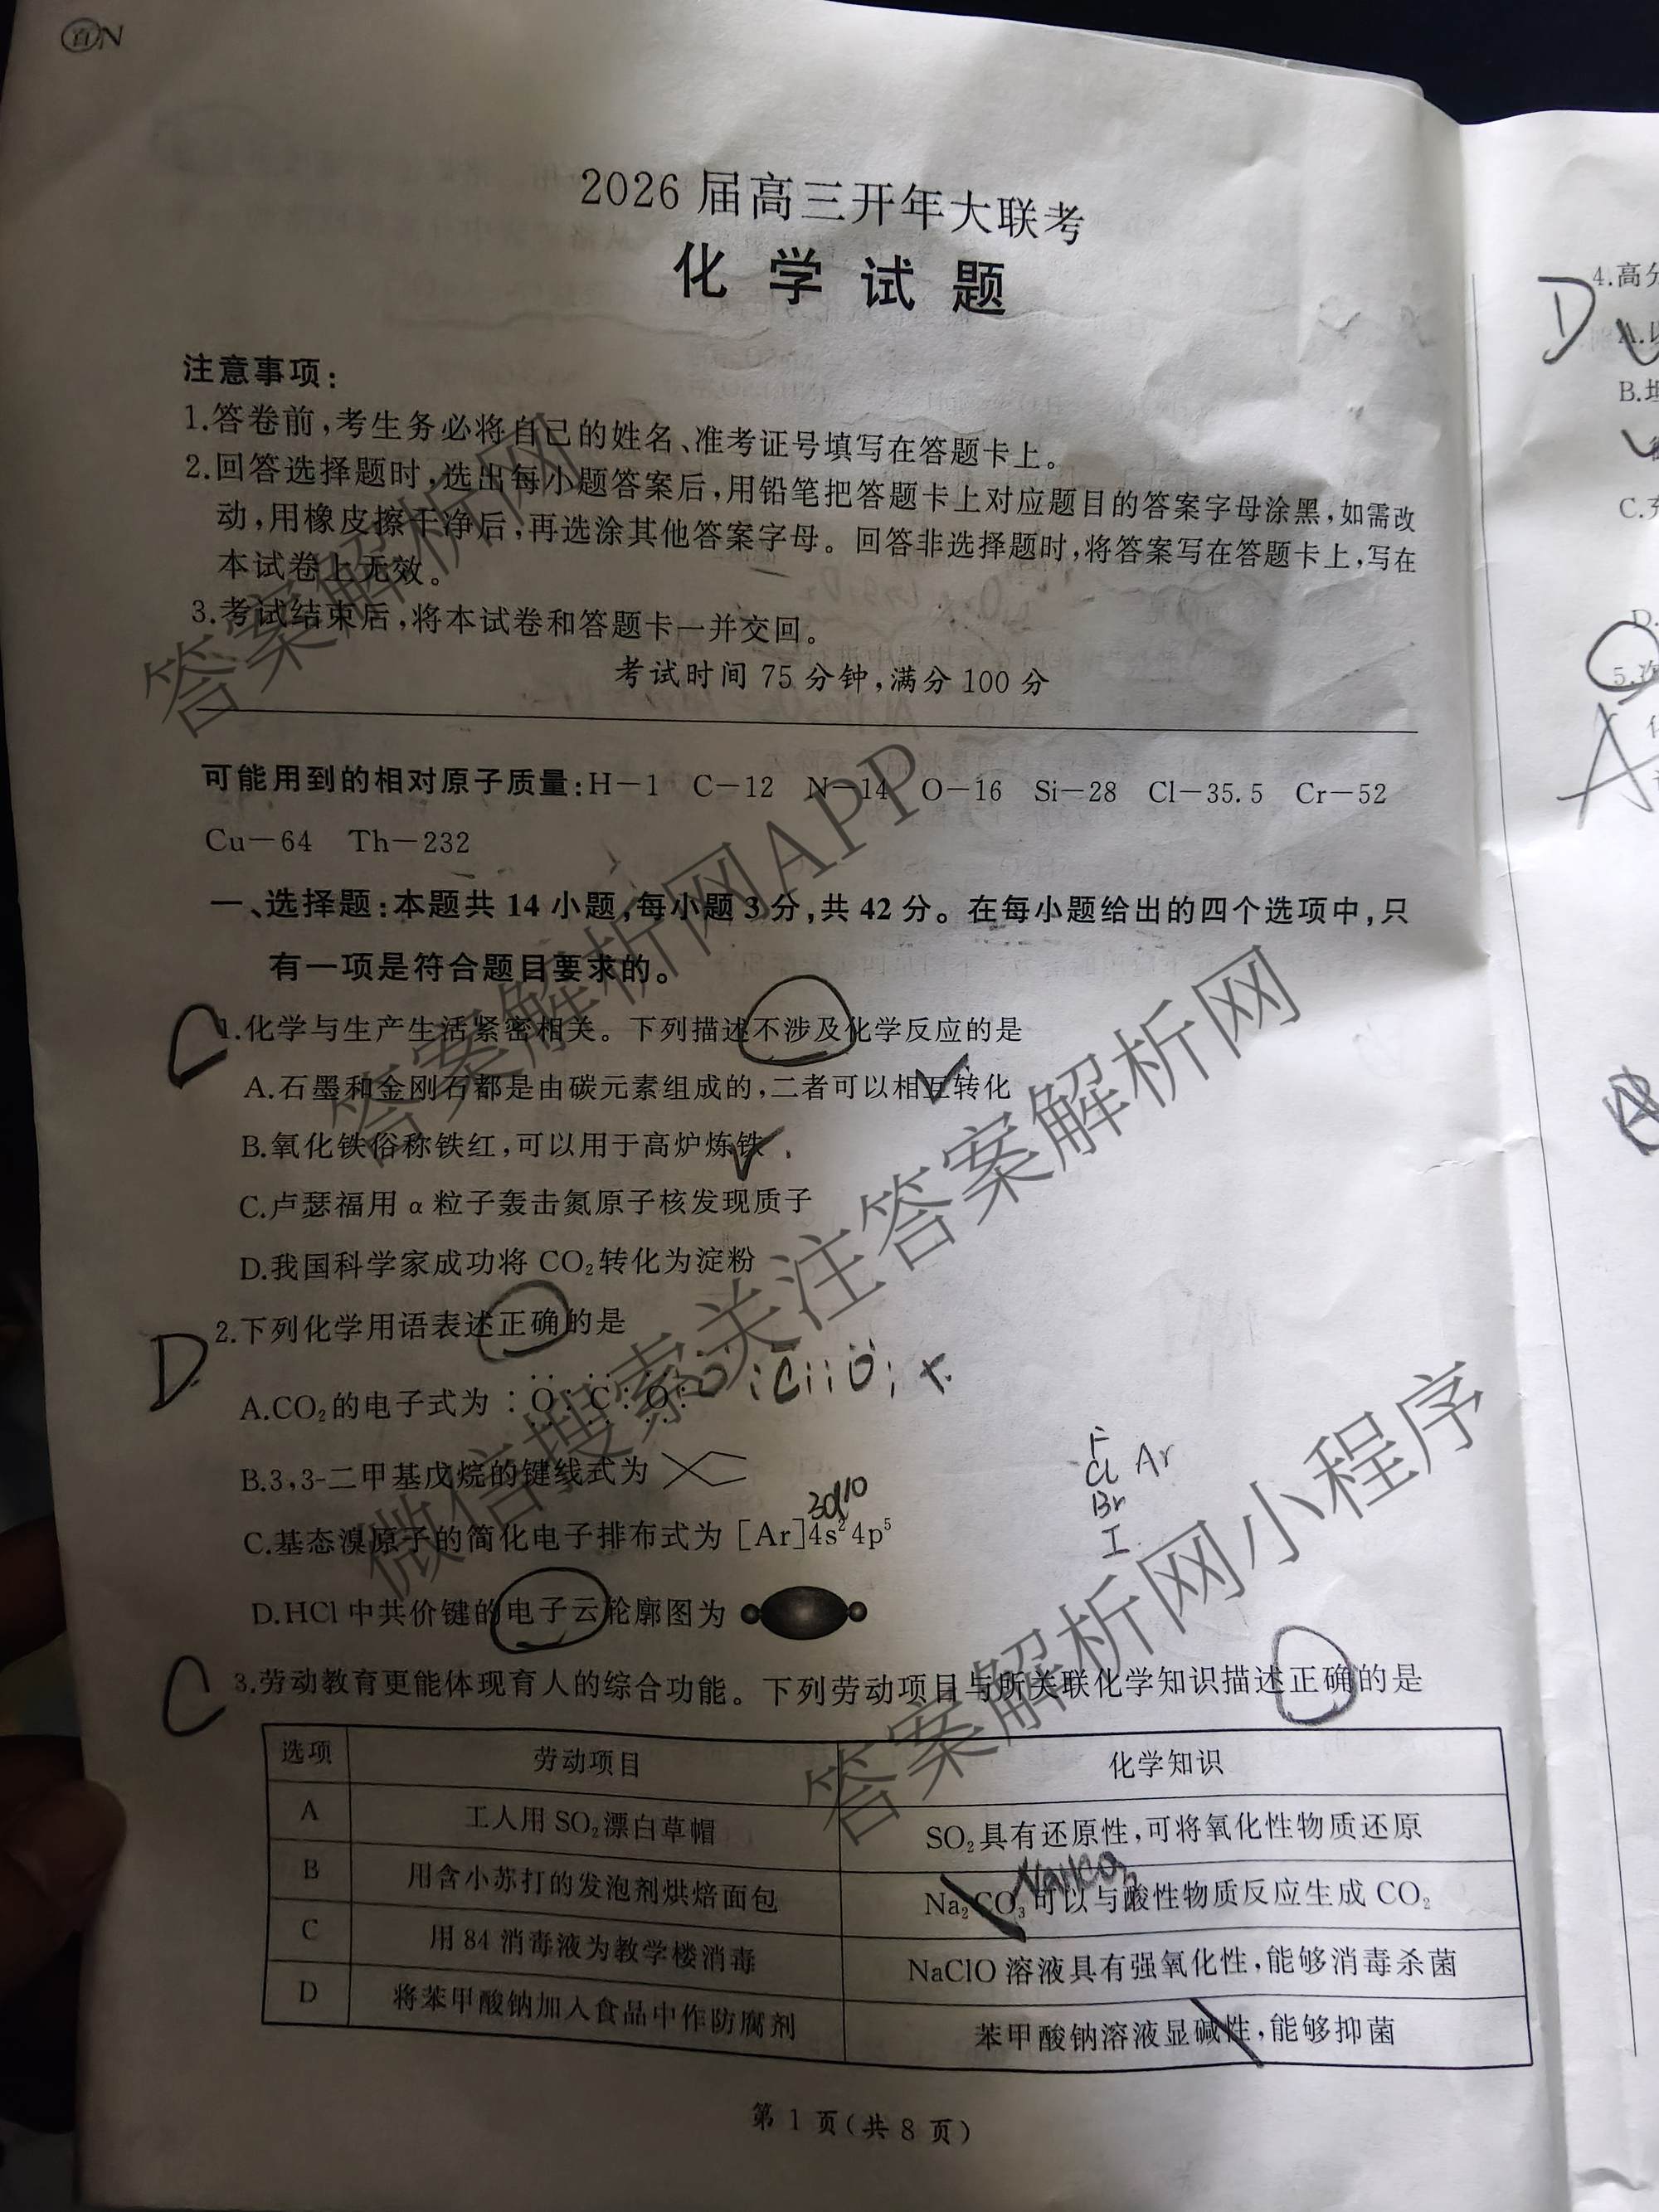 直N
2026届高三开年大联考
化学试题
注意事项:
1.答卷前,考生务必将自己的姓名、准考证号填写在答题卡上。
2.回答选择题时,选出每小题答案后,用铅笔把答题卡上对应题目的答案字母涂黑,如需改
动,用橡皮擦干净后,再选涂其他答案字母。回答非选择题时,将答案写在答题卡上,写在
本试卷上无效。
3.考试结束后,将本试卷和答题卡一并交回。
考试时间75分钟,满分100分
可能用到的相对原子质量:H-1 C-12 N-14 O-16 Si-28 Cl-35.5 Cr-52
Cu-64 Th-232
一、选择题:本题共14小题,每小题3分,共42分。在每小题给出的四个选项中,只
有一项是符合题目要求的。
C 1.化学与生产生活紧密相关。下列描述不涉及化学反应的是
A.石墨和金刚石都是由碳元素组成的,二者可以相互转化
B.氧化铁俗称铁红,可以用于高炉炼铁
C.卢瑟福用α粒子轰击氮原子核发现质子
D.我国科学家成功将CO₂转化为淀粉
D 2.下列化学用语表述正确的是
A.CO₂的电子式为 :O:C:O: O::C::O: ×
B.3,3-二甲基戊烷的键线式为
C.基态溴原子的简化电子排布式为[Ar]4s²4p⁵
3d10
F
Cl Ar
Br
I
D.HCl中共价键的电子云轮廓图为
C 3.劳动教育更能体现育人的综合功能。下列劳动项目与所关联化学知识描述正确的是
选项 劳动项目 化学知识
A 工人用SO₂漂白草帽 SO₂具有还原性,可将氧化性物质还原
B 用含小苏打的发泡剂烘焙面包 Na₂CO₃可以与酸性物质反应生成CO₂
NaHCO3
C 用84消毒液为教学楼消毒 NaClO溶液具有强氧化性,能够消毒杀菌
D 将苯甲酸钠加入食品中作防腐剂 苯甲酸钠溶液显碱性,能够抑菌
第1页(共8页)
D 4.高分
B.
C.
D.
5.
A
答案解析网
答案解析网APP
微信搜索关注答案解析网
答案解析网小程序